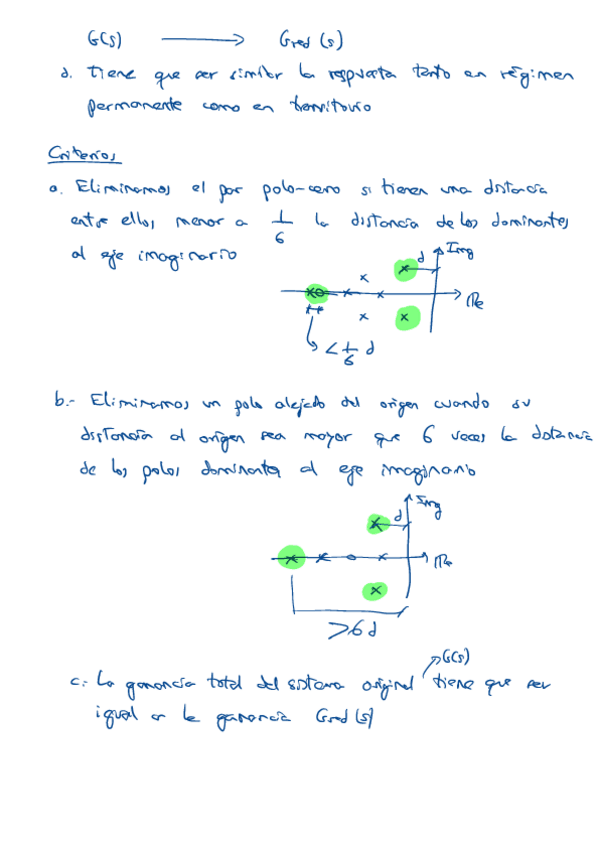 G(s) → Gred (s)
d. tiene que ser similar la respuesta tanto en régimen
permanente como en transitorio
Criterios
a. Eliminamos el par polo-cero si tienen una distancia
entre ellos menor a 1/6 la distancia de los dominantes
al eje imaginario
d
Img
Re
< 1/6 d
b.- Eliminamos un polo alejado del origen cuando su
distancia al origen sea mayor que 6 veces la distancia
de los polos dominantes al eje imaginario
d
Img
Re
>6d
G(s)
c.- La ganancia total del sistema original tiene que ser
igual a la ganancia Gred(s)